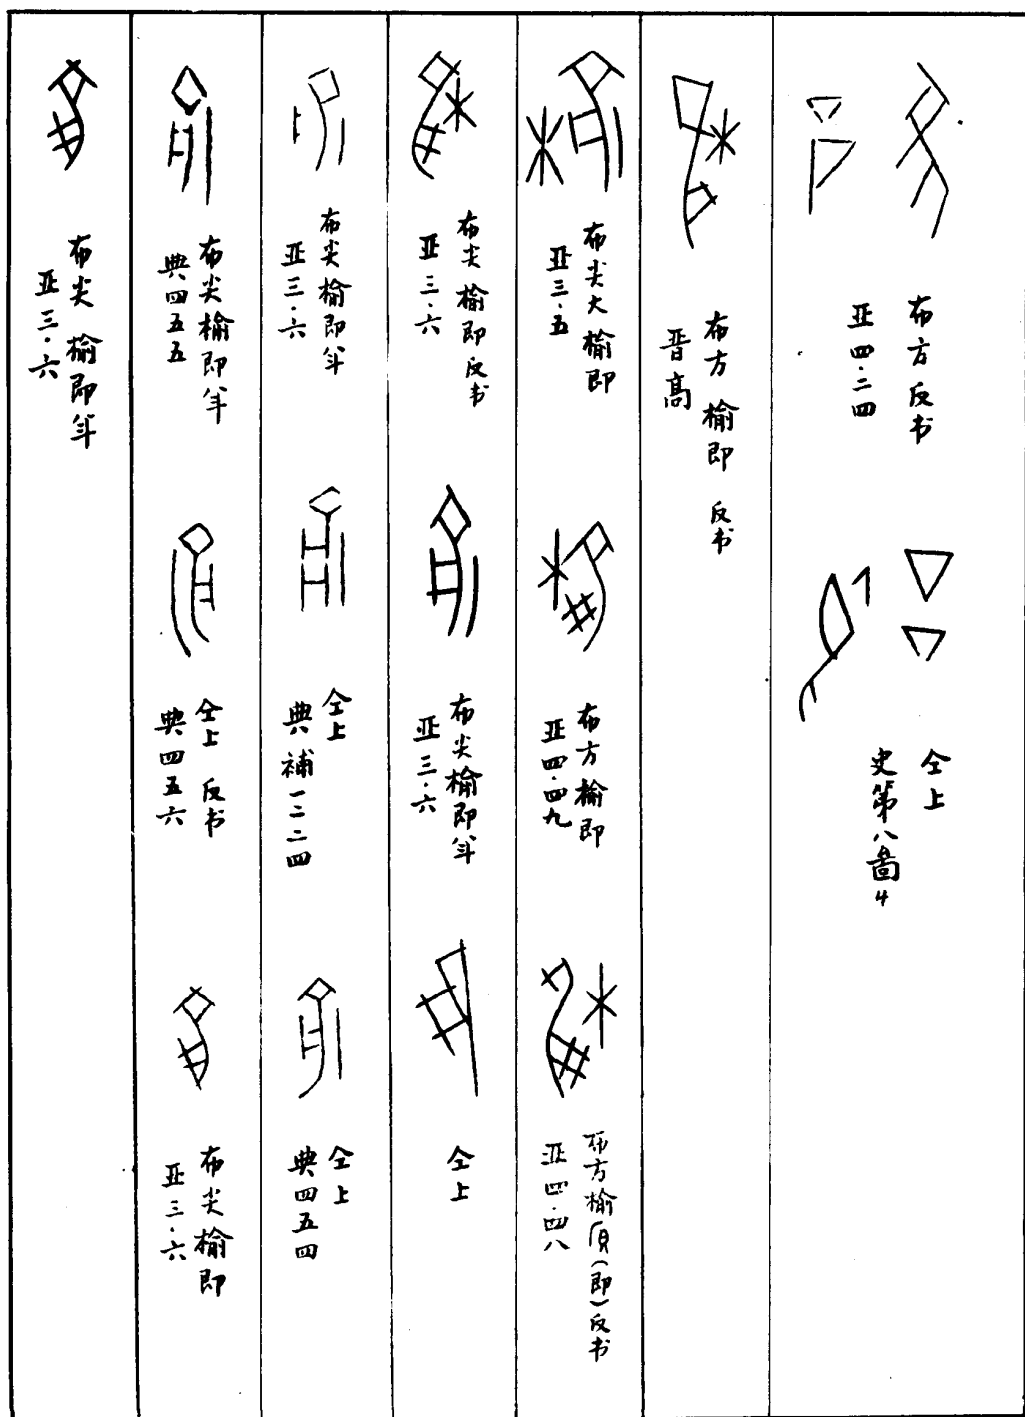 布方反书
亚四·二四
仝上
史第八图4
布方榆即 反书
晋高
布尖大榆即
亚三·五
布方榆即
亚四·四九
布方榆㑯(即)反书
亚四·四八
布尖榆即反书
亚三·六
布尖榆即半
亚三·六
仝上
布尖榆即半
亚三·六
仝上
典補一二二四
仝上
典四五四
布尖榆即半
典四五五
仝上 反书
典四五六
布尖榆即
亚三·六
布尖榆即半
亚三·六